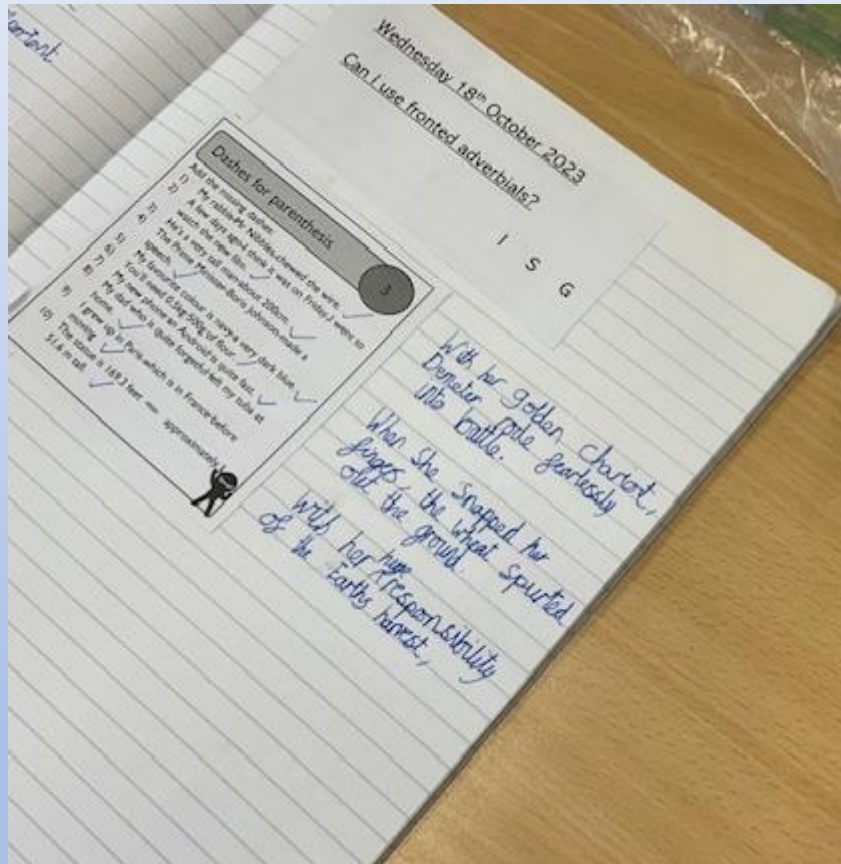 Wednesday 18th October 2023
Can I use fronted adverbials?
I S G
Dashes for parenthesis
3
Add the missing dashes.
1) My rabbit Mr. Nibbles chewed the wire.
2) A few days ago I think it was on Friday I went to
watch the new film.
3) He's a very tall man about 200cm.
4) The Prime Minister Boris Johnson made a
speech.
5) My favourite colour is navy a very dark blue.
6) You'll need 0.5kg 500g of flour.
7) My new phone an Android is quite fast.
8) My dad who is quite forgetful left my tuba at
home.
9) I grew up in Paris which is in France before
moving.
10) The statue is 169.3 feet — approximately
51.6 m tall.
With her golden chariot,
Demeter rode fearlessly
into battle.
When She Snapped her
finges, the wheat spurted
out the ground.
With her huge responsibility
of the Earths harvest,